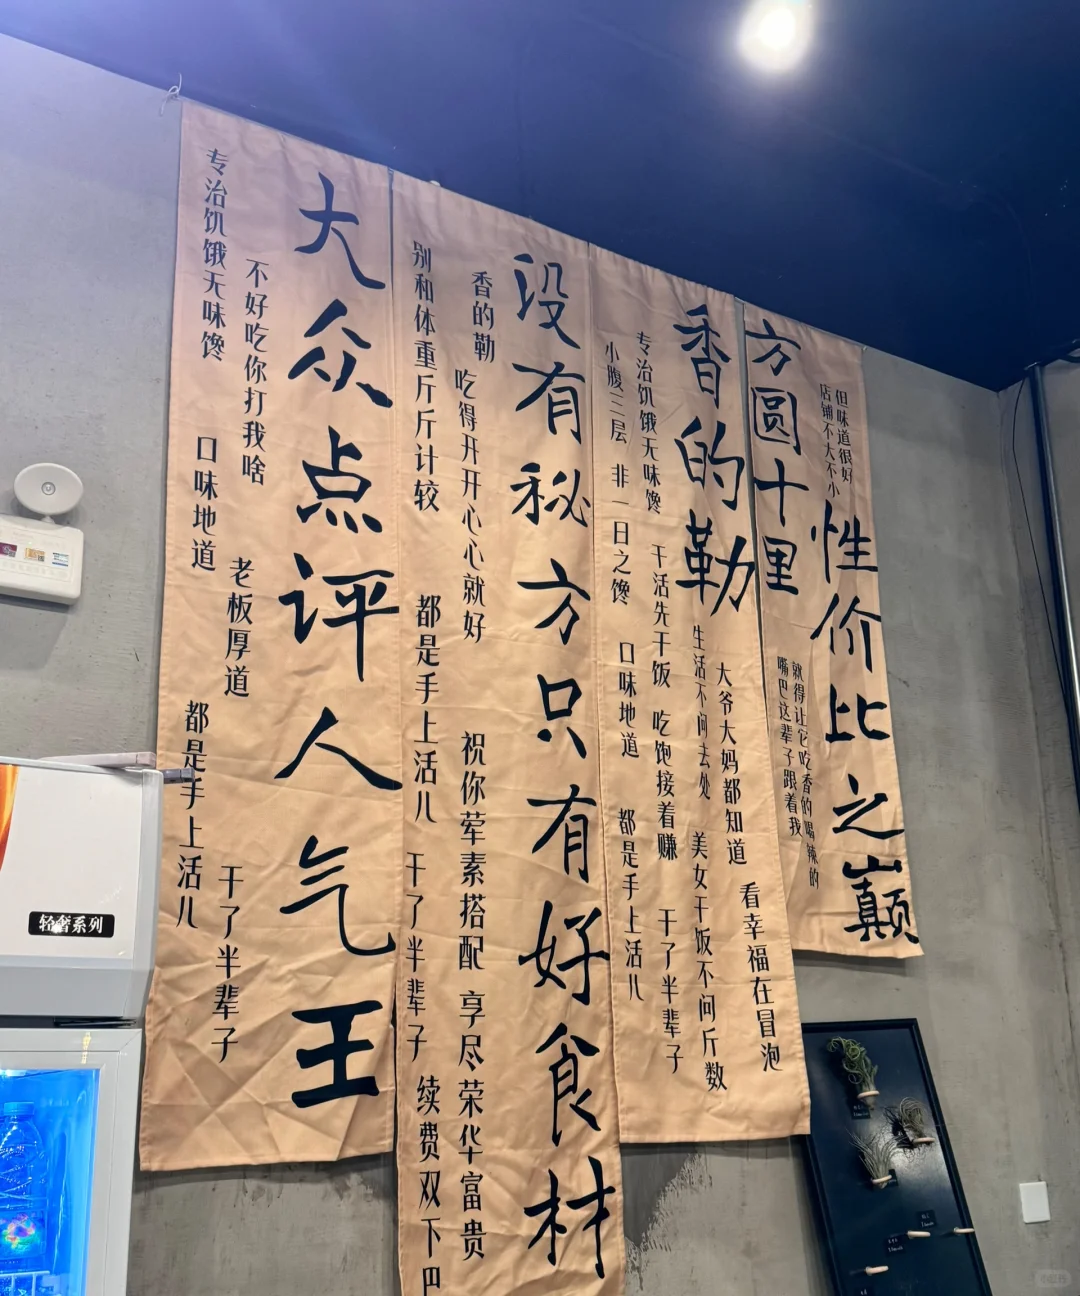 大众点评人气王
不好吃你打我啥
老板厚道
干了半辈子
专治饥饿无味馋
口味地道
都是手上活儿
没有秘方只有好食材
香的勒
吃得开开心心就好
祝你荤素搭配
享尽荣华富贵
别和体重斤斤计较
都是手上活儿
干了半辈子
续费双下巴
香的勒
大爷大妈都知道
看幸福在冒泡
生活不问去处
美女干饭不问斤数
专治饥饿无味馋
干活先干饭
吃饱接着赚
干了半辈子
小腹三层
非一日之馋
口味地道
都是手上活儿
方圆十里
性价比之巅
但味道很好
店铺不大不小
就得让它吃香的喝辣的
嘴巴这辈子跟着我
轻奢系列